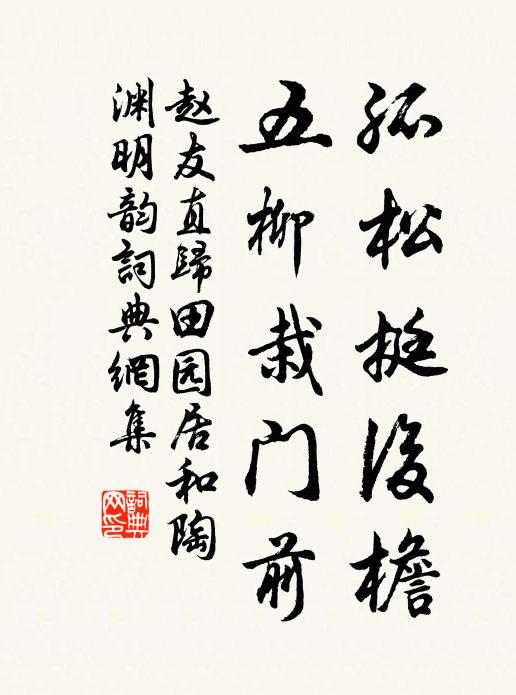 孤松挺後檐
五柳栽门前
赵友直歸田园居和陶
渊明韵詞典網集
詞典
网印